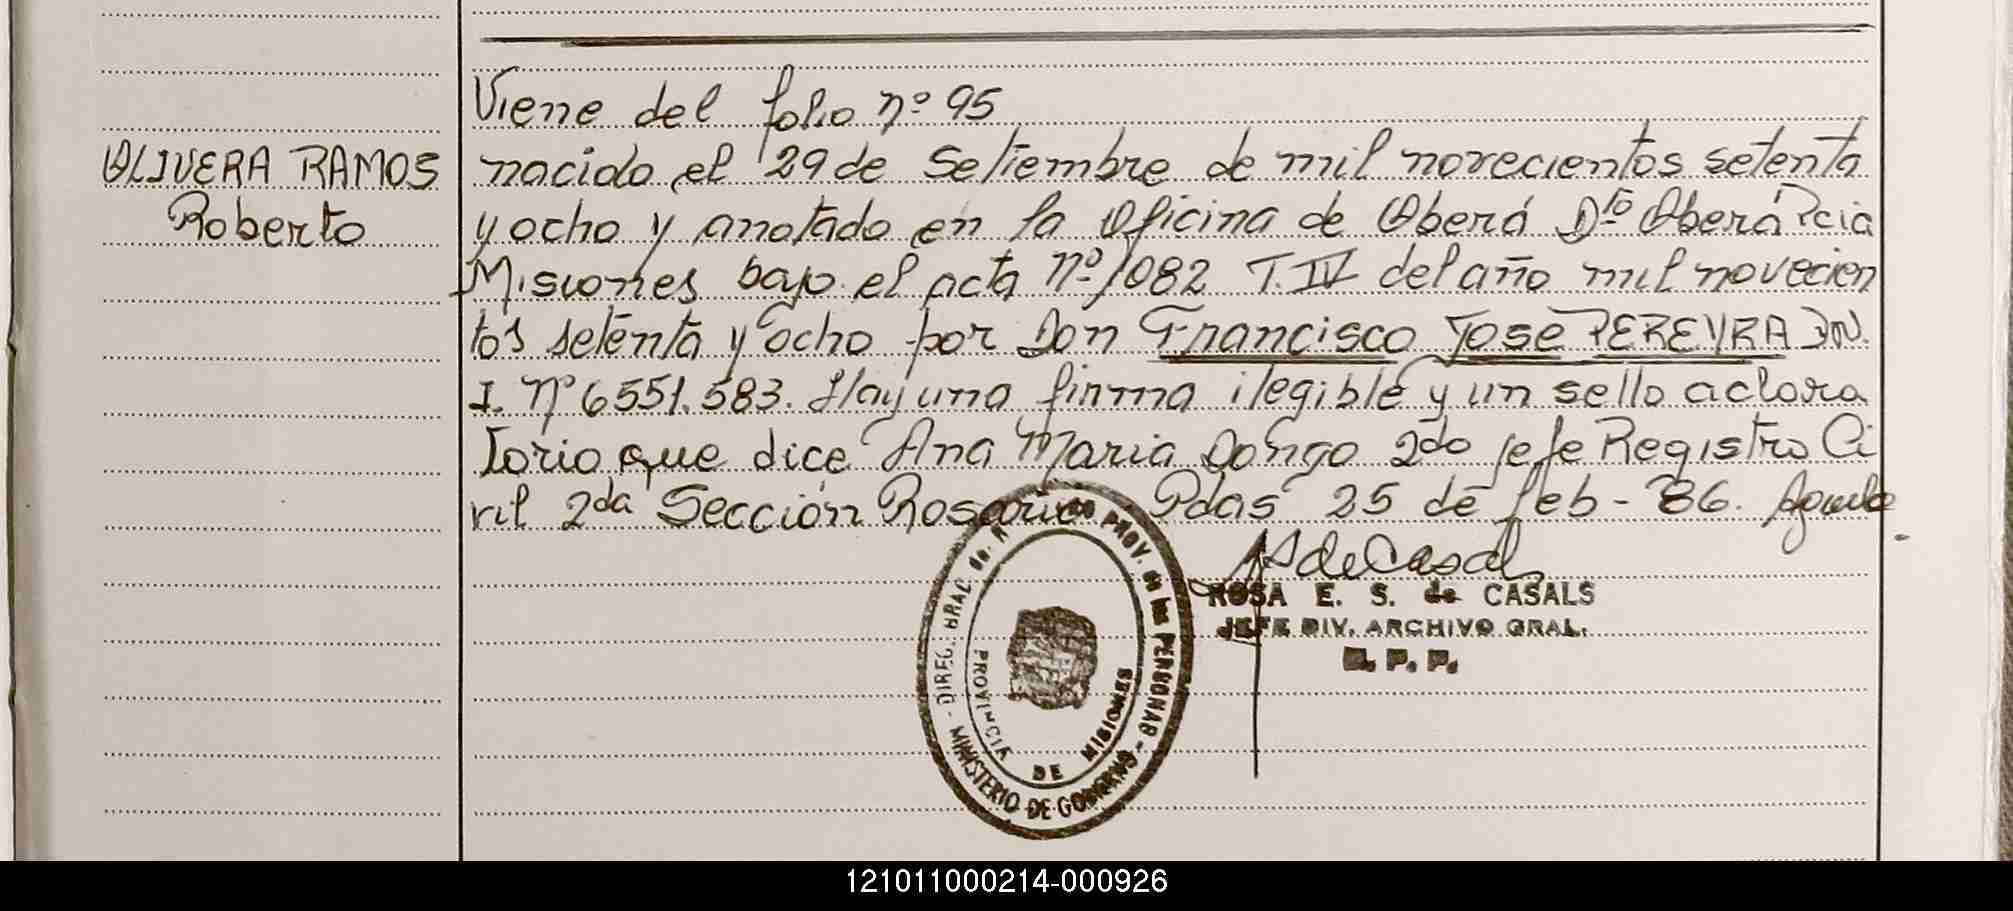 Viene del folio nº 95
OLIVERA RAMOS
Roberto
nacido el 29 de Setiembre de mil novecientos setenta
y ocho y anotado en la Oficina de Oberá Dtº Oberá Pcia
Misiones bajo el acta nº 1082 T. IV del año mil novecien
tos setenta y ocho por Don Francisco Jose PEREYRA DN.
I. Nº 6551.583. Hay una firma ilegible y un sello aclara
torio que dice Ana Maria Dongo 2do jefe Registro Ci
vil 2da Sección Rosario Pdas 25 de feb - 86.
ROSA E. S. de CASALS
JEFE DIV. ARCHIVO GRAL.
R. P. P.
DIREC. GRAL. de PROV. de las PERSONAS - MINISTERIO DE GOBIERNO -
PROVINCIA DE MISIONES
121011000214-000926